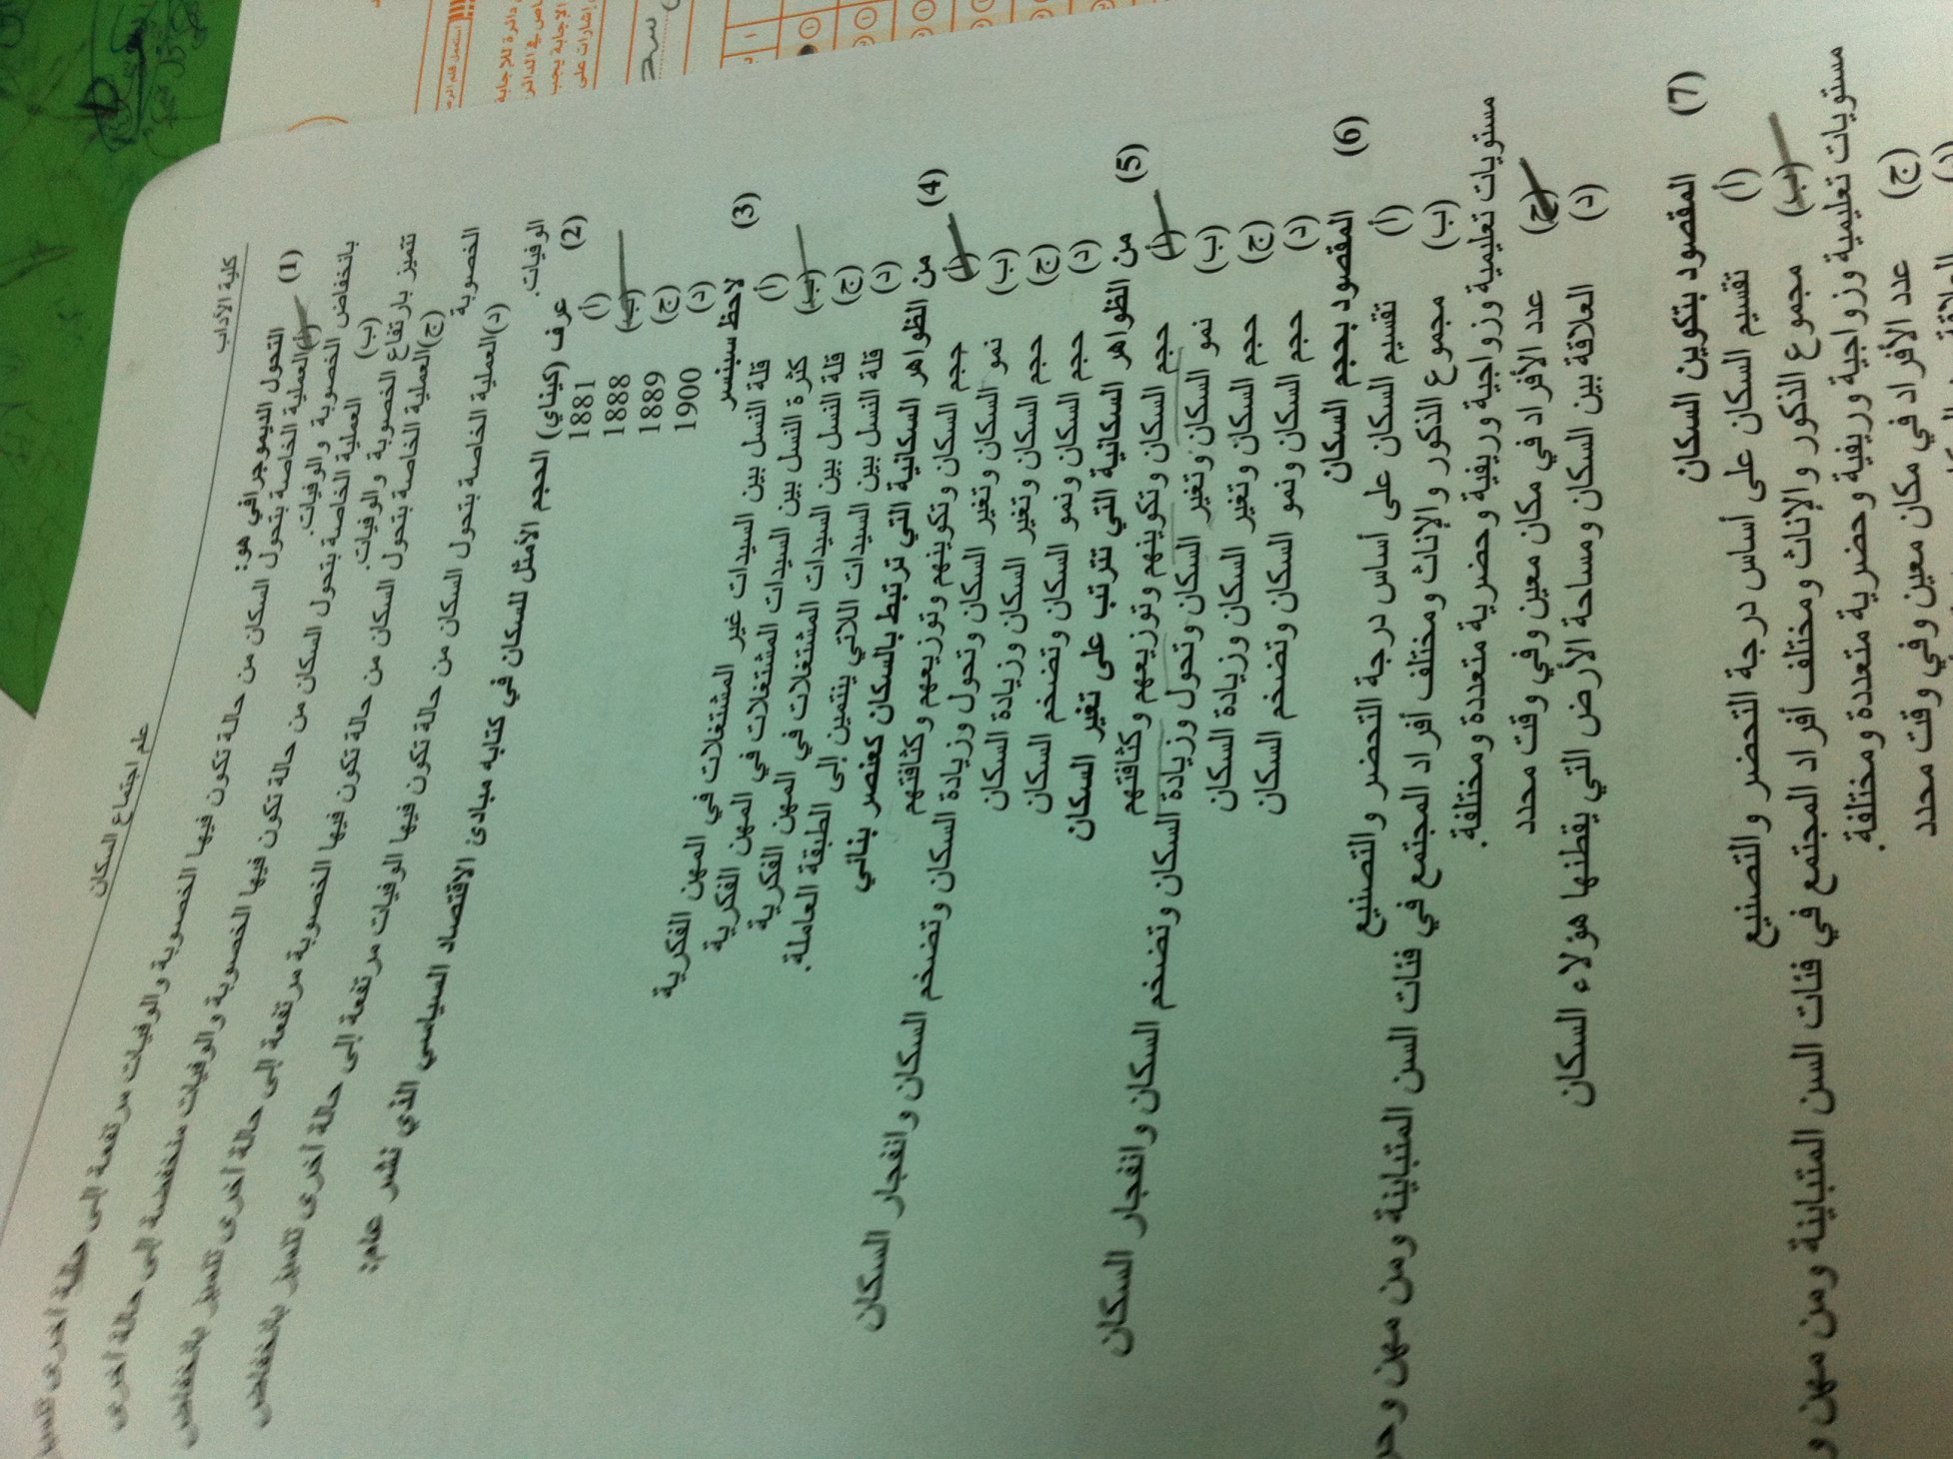 كلية الآداب
علم اجتماع السكان
(1) التحول الديموجرافي هو:
(أ) العملية الخاصة بتحول السكان من حالة تكون فيها الخصوبة والوفيات مرتفعة إلى حالة أخرى
بانخفاض الخصوبة والوفيات.
(ب) العملية الخاصة بتحول السكان من حالة تكون فيها الخصوبة والوفيات منخفضة إلى حالة أخرى
تتميز بارتفاع الخصوبة والوفيات.
(ج) العملية الخاصة بتحول السكان من حالة تكون فيها الخصوبة مرتفعة إلى حالة أخرى تتميز بانخفاض
الخصوبة
(د) العملية الخاصة بتحول السكان من حالة تكون فيها الوفيات مرتفعة إلى حالة أخرى تتميز بانخفاض
الوفيات.
(2) عرف (كيناي) الحجم الأمثل للسكان في كتابه مبادئ الاقتصاد السياسي الذي نشر عام:
(أ) 1881
(ب) 1888
(ج) 1889
(د) 1900
(3) لاحظ سبنسر
(أ) قلة النسل بين السيدات غير المشتغلات في المهن الفكرية
(ب) كثرة النسل بين السيدات المشتغلات في المهن الفكرية
(ج) قلة النسل بين السيدات المشتغلات في المهن الفكرية
(د) قلة النسل بين السيدات اللاتي ينتمين إلى الطبقة العاملة.
(4) من الظواهر السكانية التي ترتبط بالسكان كعنصر بنائي
(أ) حجم السكان وتكوينهم وتوزيعهم وكثافتهم
(ب) نمو السكان وتغير السكان وتحول وزيادة السكان وتضخم السكان وانفجار السكان
(ج) حجم السكان وتغير السكان وزيادة السكان
(د) حجم السكان ونمو السكان وتضخم السكان
(5) من الظواهر السكانية التي تترتب على تغير السكان
(أ) حجم السكان وتكوينهم وتوزيعهم وكثافتهم
(ب) نمو السكان وتغير السكان وتحول وزيادة السكان وتضخم السكان وانفجار السكان
(ج) حجم السكان وتغير السكان وزيادة السكان
(د) حجم السكان ونمو السكان وتضخم السكان
(6) المقصود بحجم السكان
(أ) تقسيم السكان على أساس درجة التحضر والتصنيع
(ب) مجموع الذكور والإناث ومختلف أفراد المجتمع في فئات السن المتباينة ومن مهن وحر
مستويات تعليمية وزواجية وريفية وحضرية متعددة ومختلفة.
(ج) عدد الأفراد في مكان معين وفي وقت محدد
(د) العلاقة بين السكان ومساحة الأرض التي يقطنها هؤلاء السكان
(7) المقصود بتكوين السكان
(أ) تقسيم السكان على أساس درجة التحضر والتصنيع
(ب) مجموع الذكور والإناث ومختلف أفراد المجتمع في فئات السن المتباينة ومن مهن و
مستويات تعليمية وزواجية وريفية وحضرية متعددة ومختلفة.
(ج) عدد الأفراد في مكان معين وفي وقت محدد